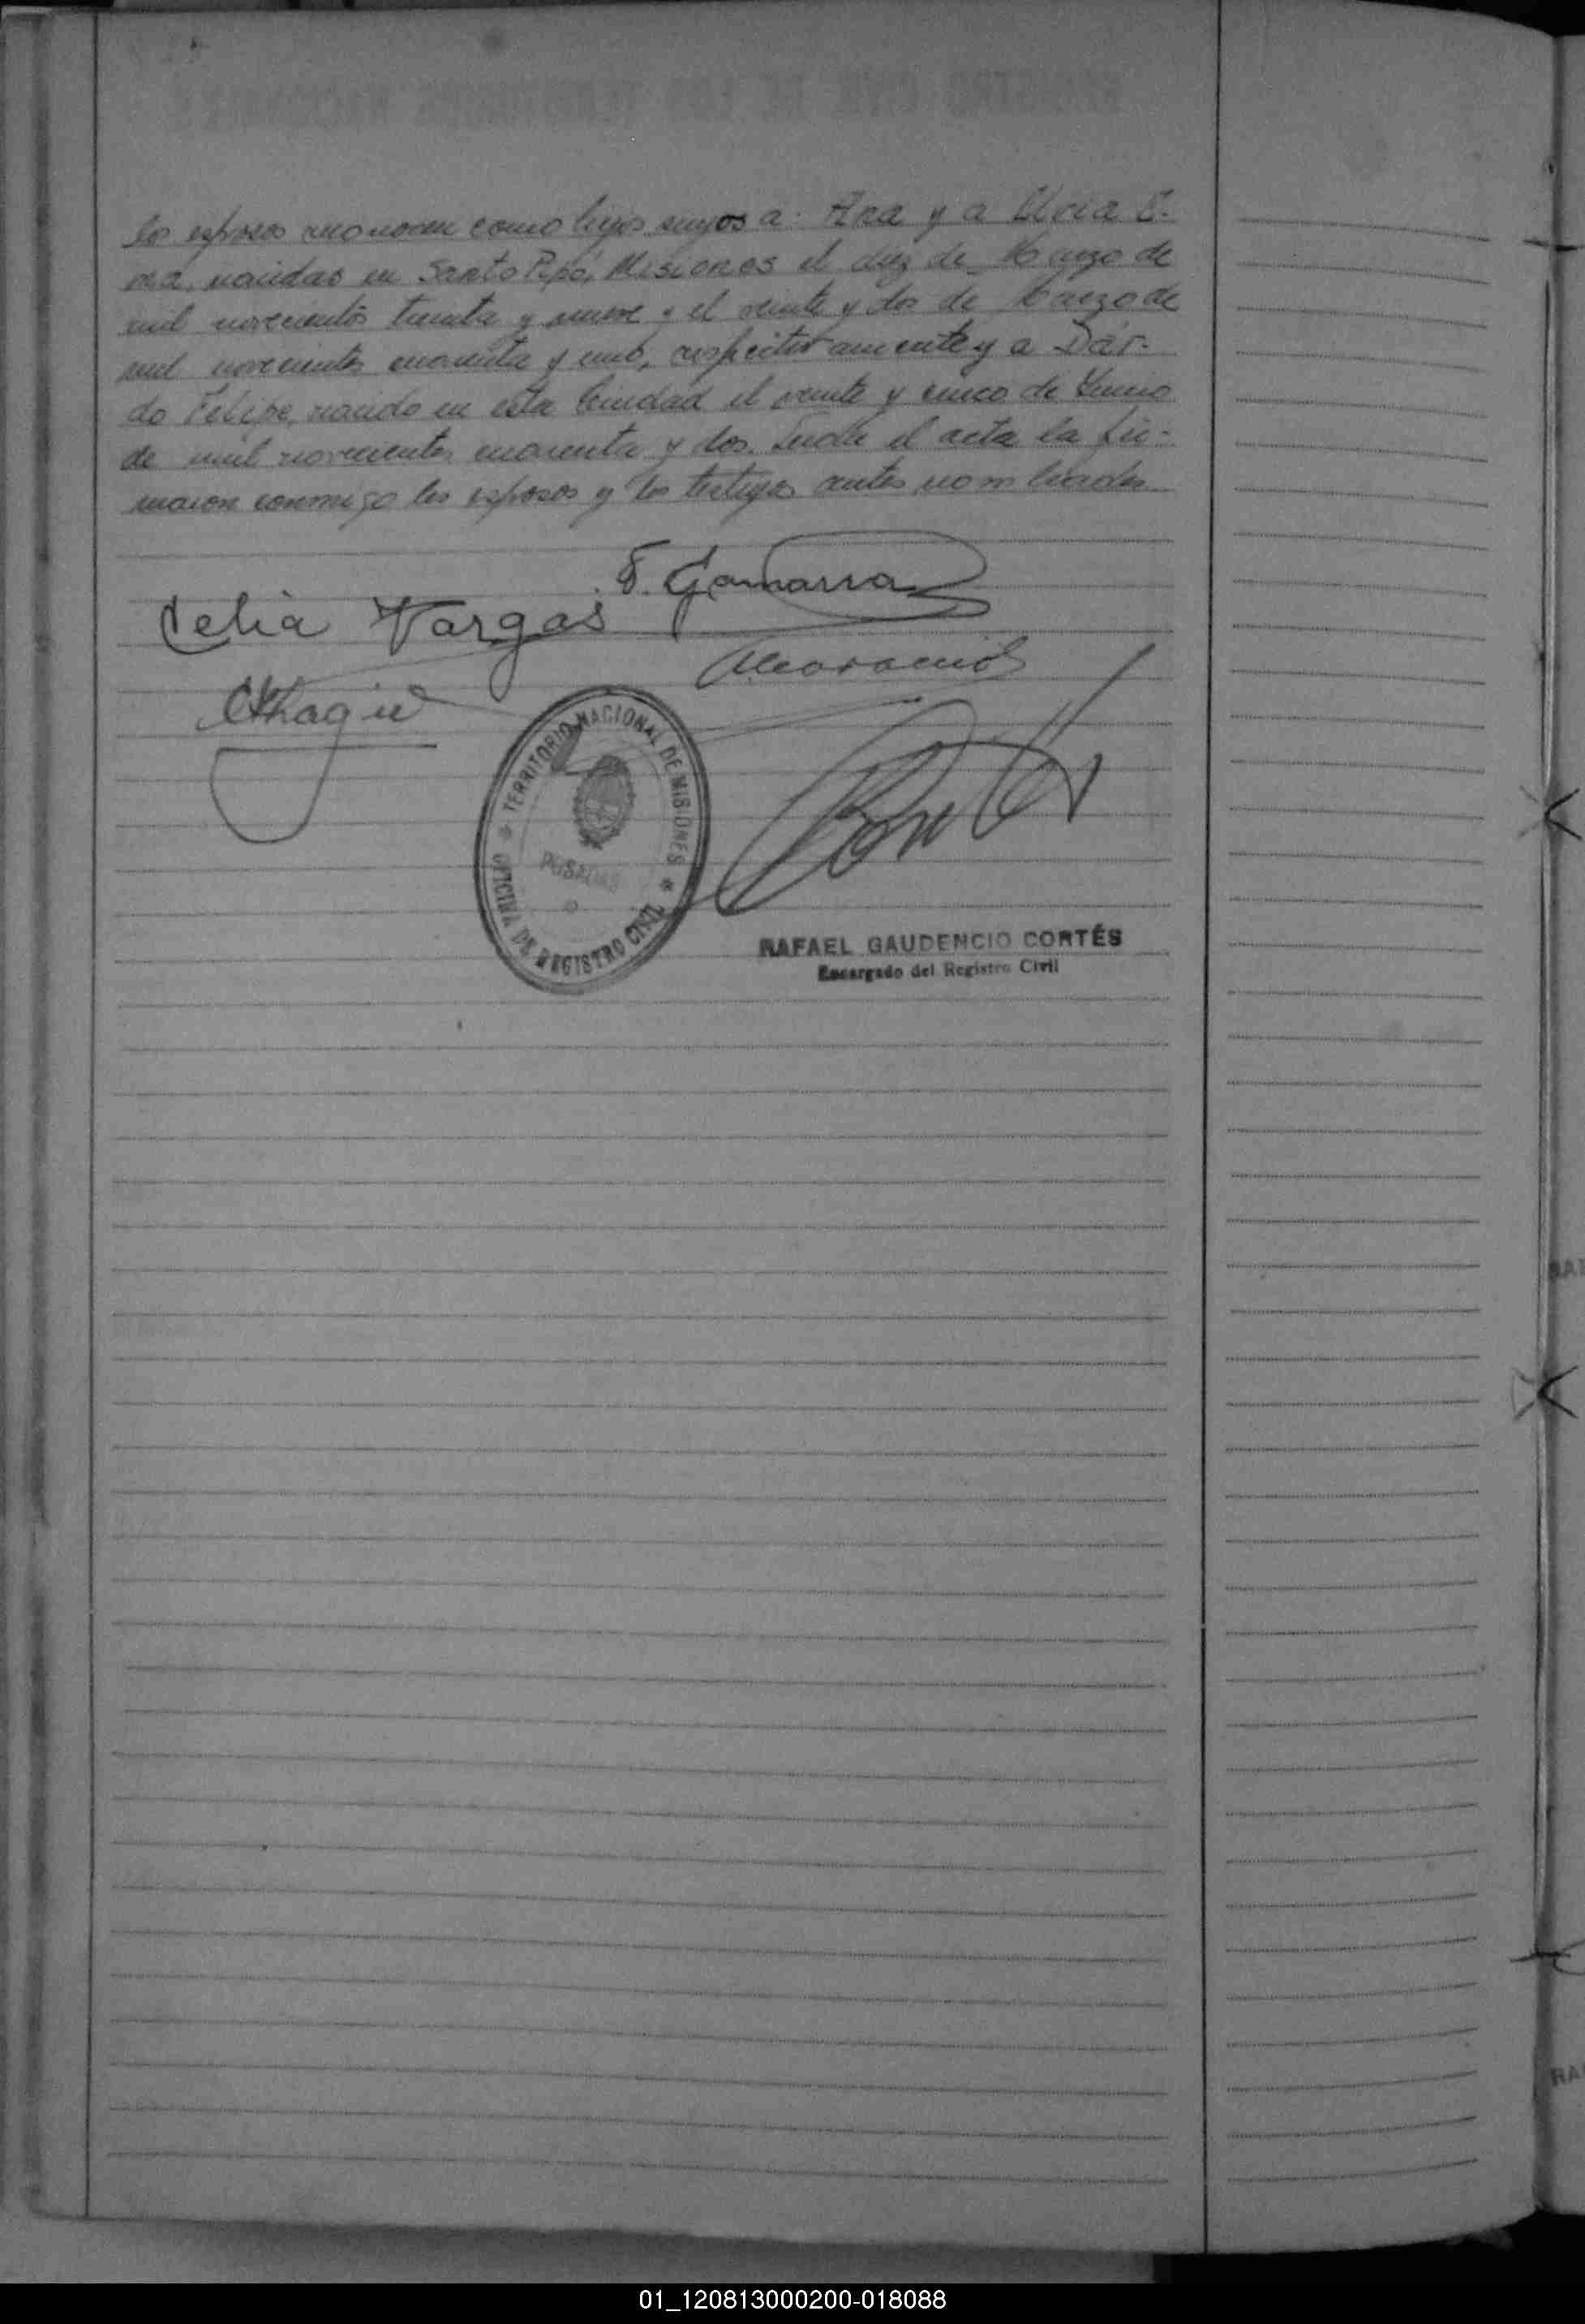 los esposos reconocen como hijos suyos a: Ana y a Elvia E-
na, nacidas en Santo Pipó, Misiones el diez de Marzo de
mil novecientos treinta y nueve y el veinte y dos de Marzo de
mil novecientos cuarenta y uno, respectivamente y a Dár-
do Felipe, nacido en esta Ciudad el veinte y cinco de Junio
de mil novecientos cuarenta y dos. Leída el acta la fir-
maron conmigo los esposos y los testigos antes nombrados
F. Gamarra
Celia Vargas
TERRITORIO NACIONAL DE MISIONES
POSADAS
OFICINA DE REGISTRO CIVIL
RAFAEL GAUDENCIO CORTÉS
Encargado del Registro Civil
01_120813000200-018088